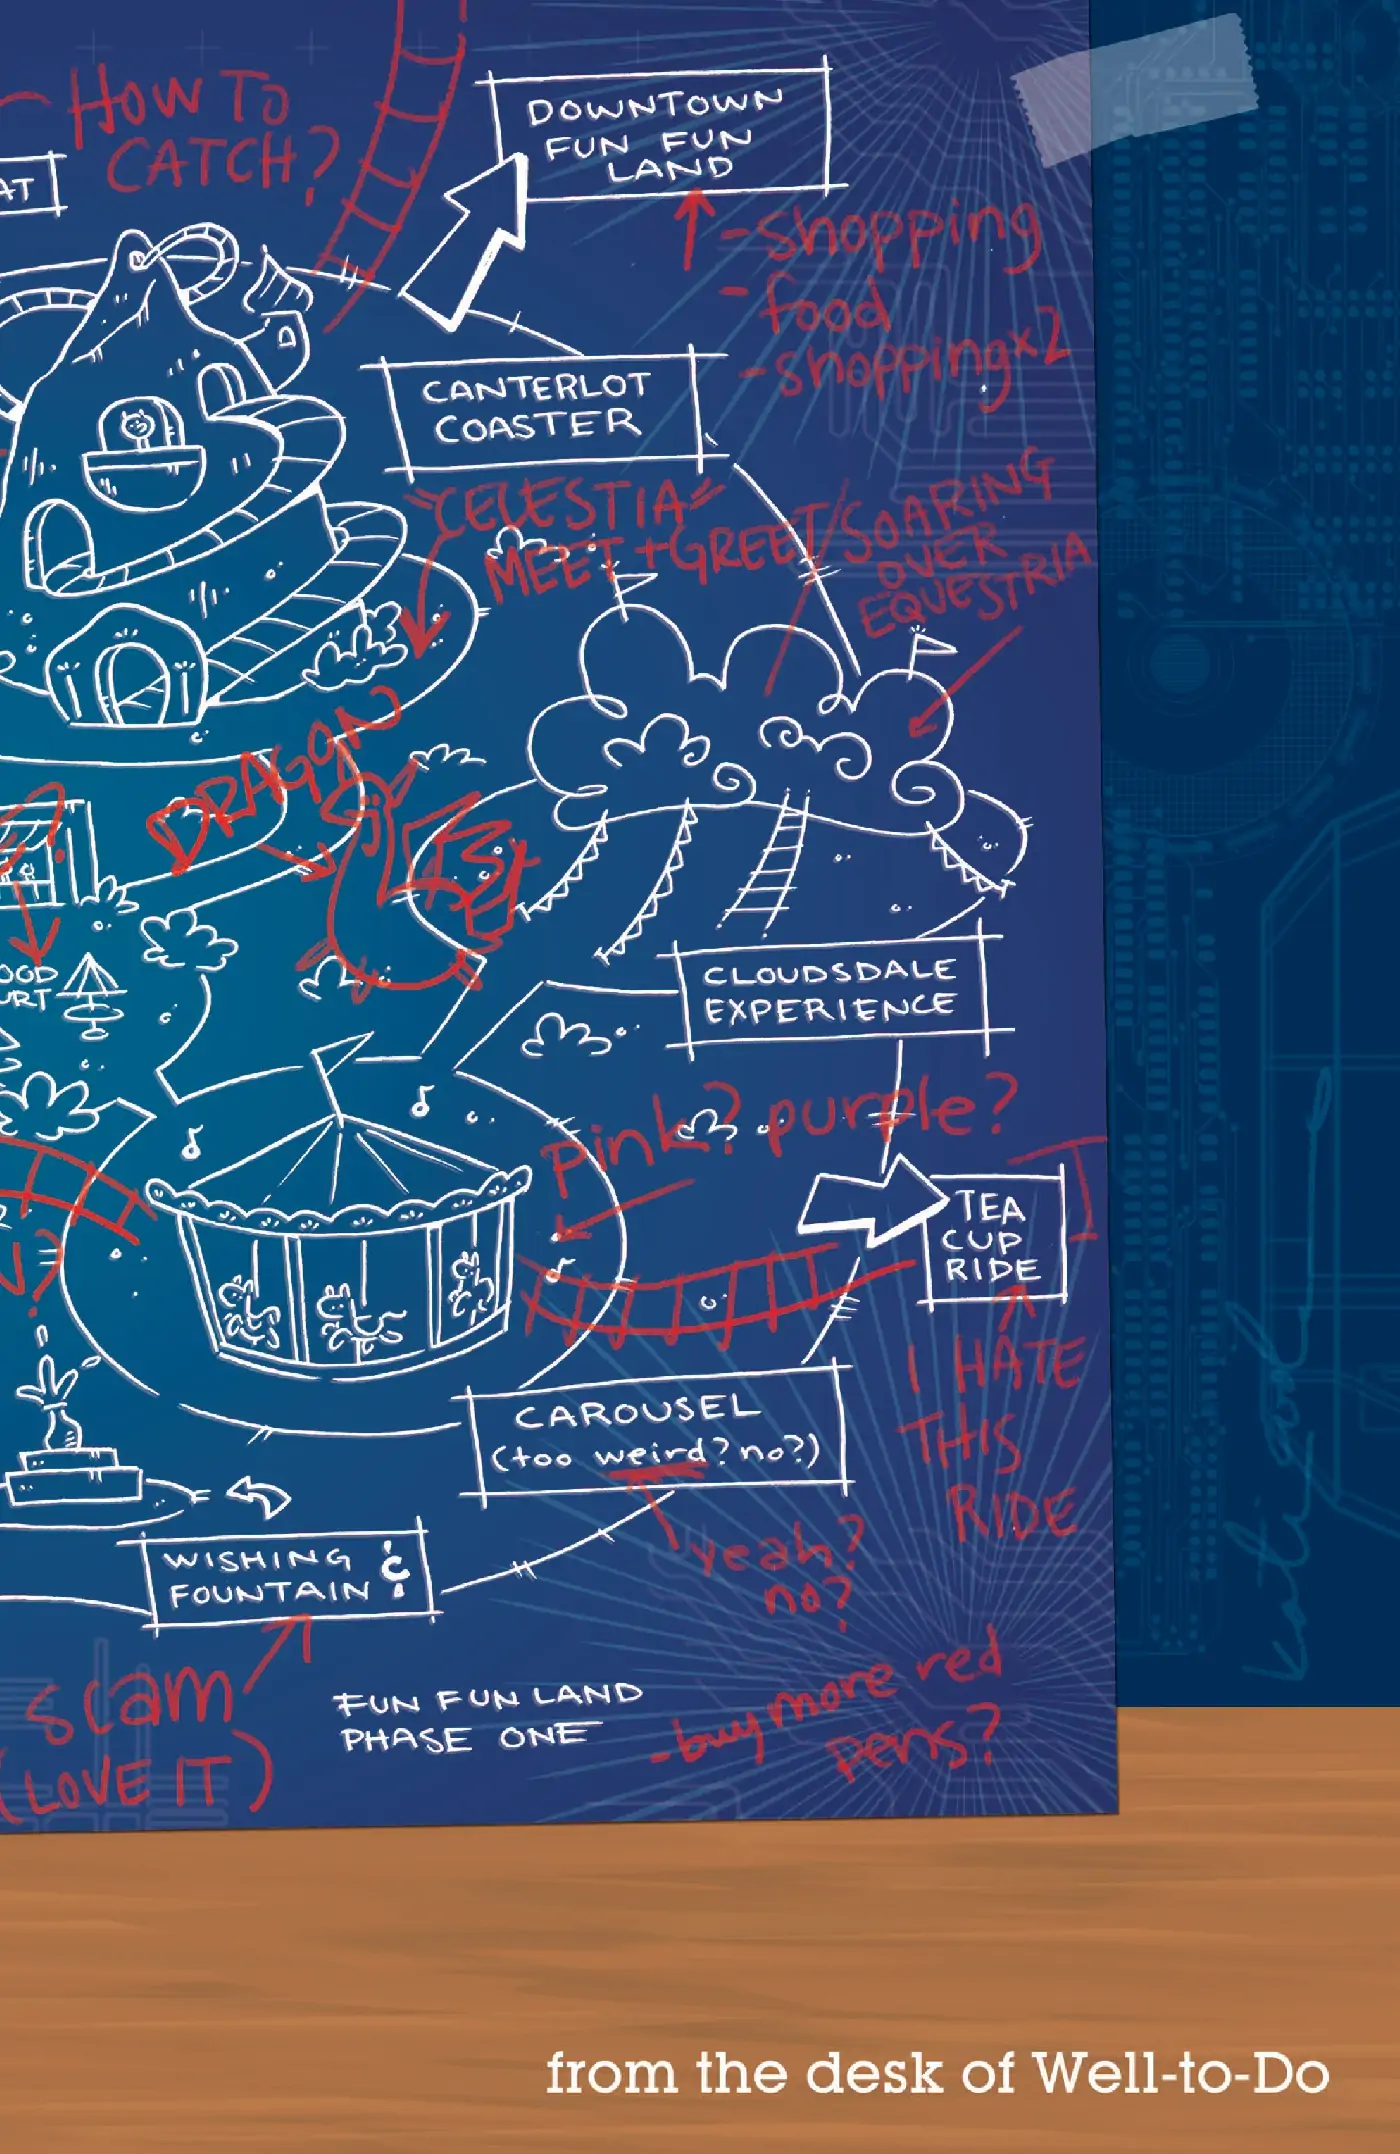 HOW TO
CATCH?
AT
DOWNTOWN
FUN FUN
LAND
-shopping
-food
-shoppingx2
CANTERLOT
COASTER
CELESTIA
MEET+GREET
SOARING
OVER
EQUESTRIA
DRAGON
CLOUDSDALE
EXPERIENCE
pink? purple?
TEA
CUP
RIDE
I HATE
THIS
RIDE
CAROUSEL
(too weird? no?)
yeah?
no?
WISHING
FOUNTAIN
scam
(LOVE IT)
FUN FUN LAND
PHASE ONE
-buy more red
pens?
from the desk of Well-to-Do